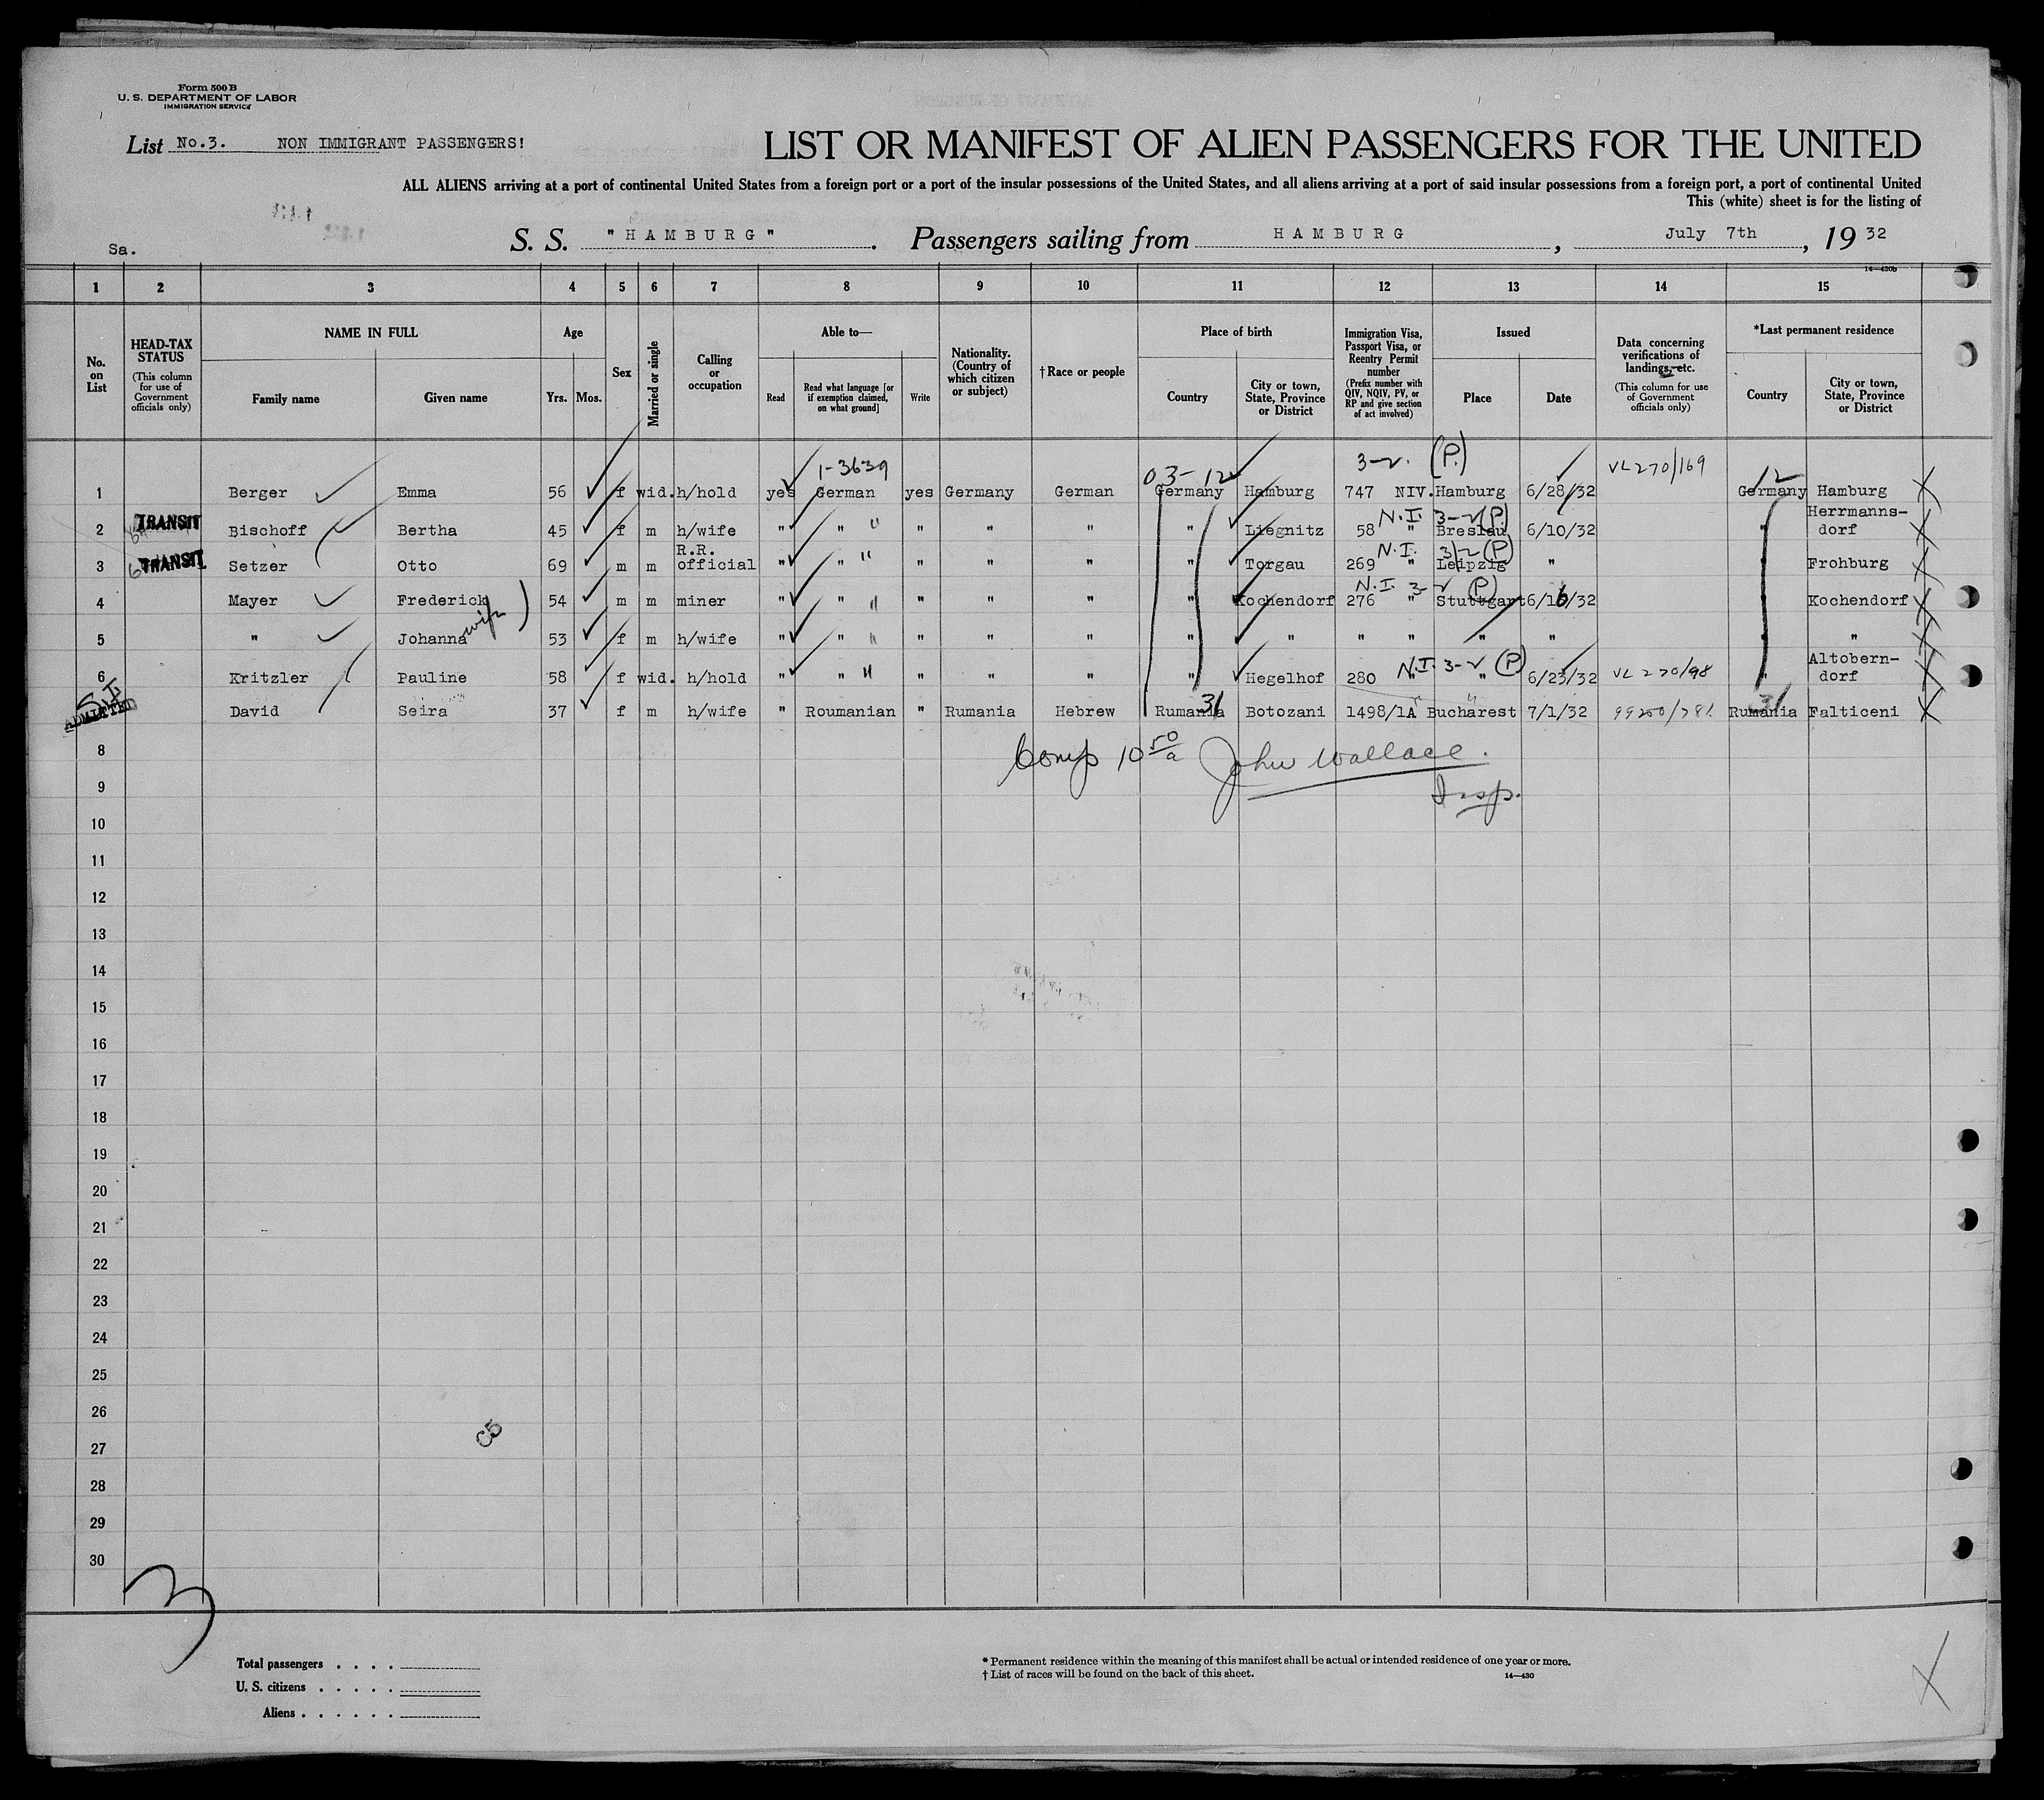 Form 500 B
U. S. DEPARTMENT OF LABOR
IMMIGRATION SERVICE
List No.3. NON IMMIGRANT PASSENGERS!
LIST OR MANIFEST OF ALIEN PASSENGERS FOR THE UNITED
ALL ALIENS arriving at a port of continental United States from a foreign port or a port of the insular possessions of the United States, and all aliens arriving at a port of said insular possessions from a foreign port, a port of continental United
This (white) sheet is for the listing of
Sa.
S. S. "HAMBURG". Passengers sailing from HAMBURG, July 7th, 19 32
14—430b
1 2 3 4 5 6 7 8 9 10 11 12 13 14 15
No. on List
HEAD-TAX STATUS (This column for use of Government officials only)
NAME IN FULL
Family name Given name
Age
Yrs. Mos.
Sex
Married or single
Calling or occupation
Able to—
Read Read what language [or if exemption claimed, on what ground] Write
Nationality. (Country of which citizen or subject)
† Race or people
Place of birth
Country City or town, State, Province or District
Immigration Visa, Passport Visa, or Reentry Permit number (Prefix number with QIV, NQIV, PV, or RP and give section of act involved)
Issued
Place Date
Data concerning verifications of landings, etc. (This column for use of Government officials only)
*Last permanent residence
Country City or town, State, Province or District
1-3639 03-12 3-2. (P.) VL270/169 12
1 Berger Emma 56 f wid. h/hold yes German yes Germany German Germany Hamburg 747 NIV. Hamburg 6/28/32 Germany Hamburg
N.I. 3-2 (P.)
2 TRANSIT Bischoff Bertha 45 f m h/wife " " " " " " " Liegnitz 58 " Breslau 6/10/32 " Herrmanns-dorf
N.I. 3-2 (P)
3 TRANSIT Setzer Otto 69 m m R.R. official " " " " " " " Torgau 269 " Leipzig " " Frohburg
N.I. 3-2 (P)
4 Mayer Frederick 54 m m miner " " " " " " " Kochendorf 276 " Stuttgart 6/16/32 " Kochendorf
wife
5 " Johanna 53 f m h/wife " " " " " " " " " " " " " "
N.I. 3-2 (P)
6 Kritzler Pauline 58 f wid. h/hold " " " " " " " Hegelhof 280 " " 6/23/32 VL 270/98 " Altobern-dorf
S.I. ADMITTED
31 31
David Seira 37 f m h/wife " Roumanian " Rumania Hebrew Rumania Botozani 1498/1A Bucharest 7/1/32 Rumania Falticeni
Comp 10 50 a John Wallace.
Insp.
8
9
10
11
12
13
14
15
16
17
18
19
20
21
22
23
24
25
26
27
28
29
30
3
Total passengers . . . .
U. S. citizens . . . . .
Aliens . . . . . .
* Permanent residence within the meaning of this manifest shall be actual or intended residence of one year or more.
† List of races will be found on the back of this sheet.
14—430